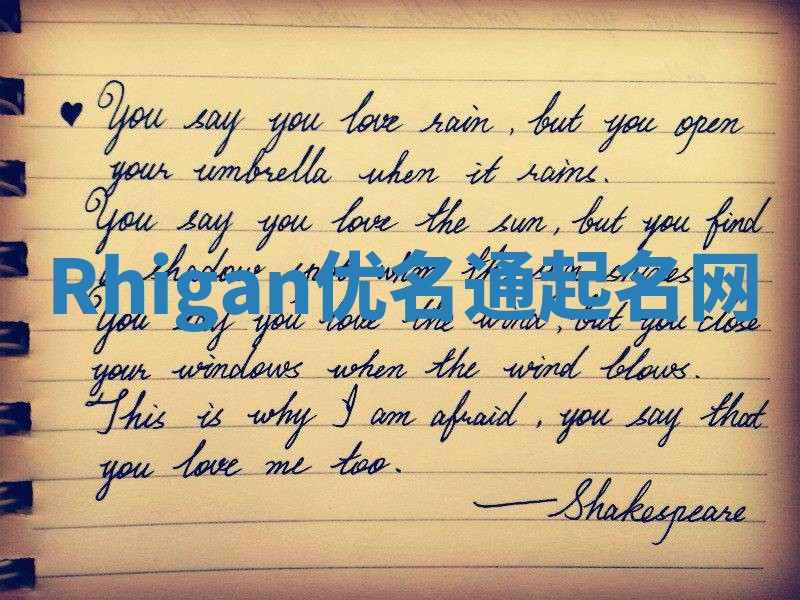 ♥ You say you love rain, but you open
your umbrella when it rains.
You say you love the sun, but you find
a shadow spot when the sun shines
Rhigan优名通起名网
You say you love the wind, but you close
your windows when the wind blows.
This is why I am afraid, you say that
you love me too.
—Shakespeare